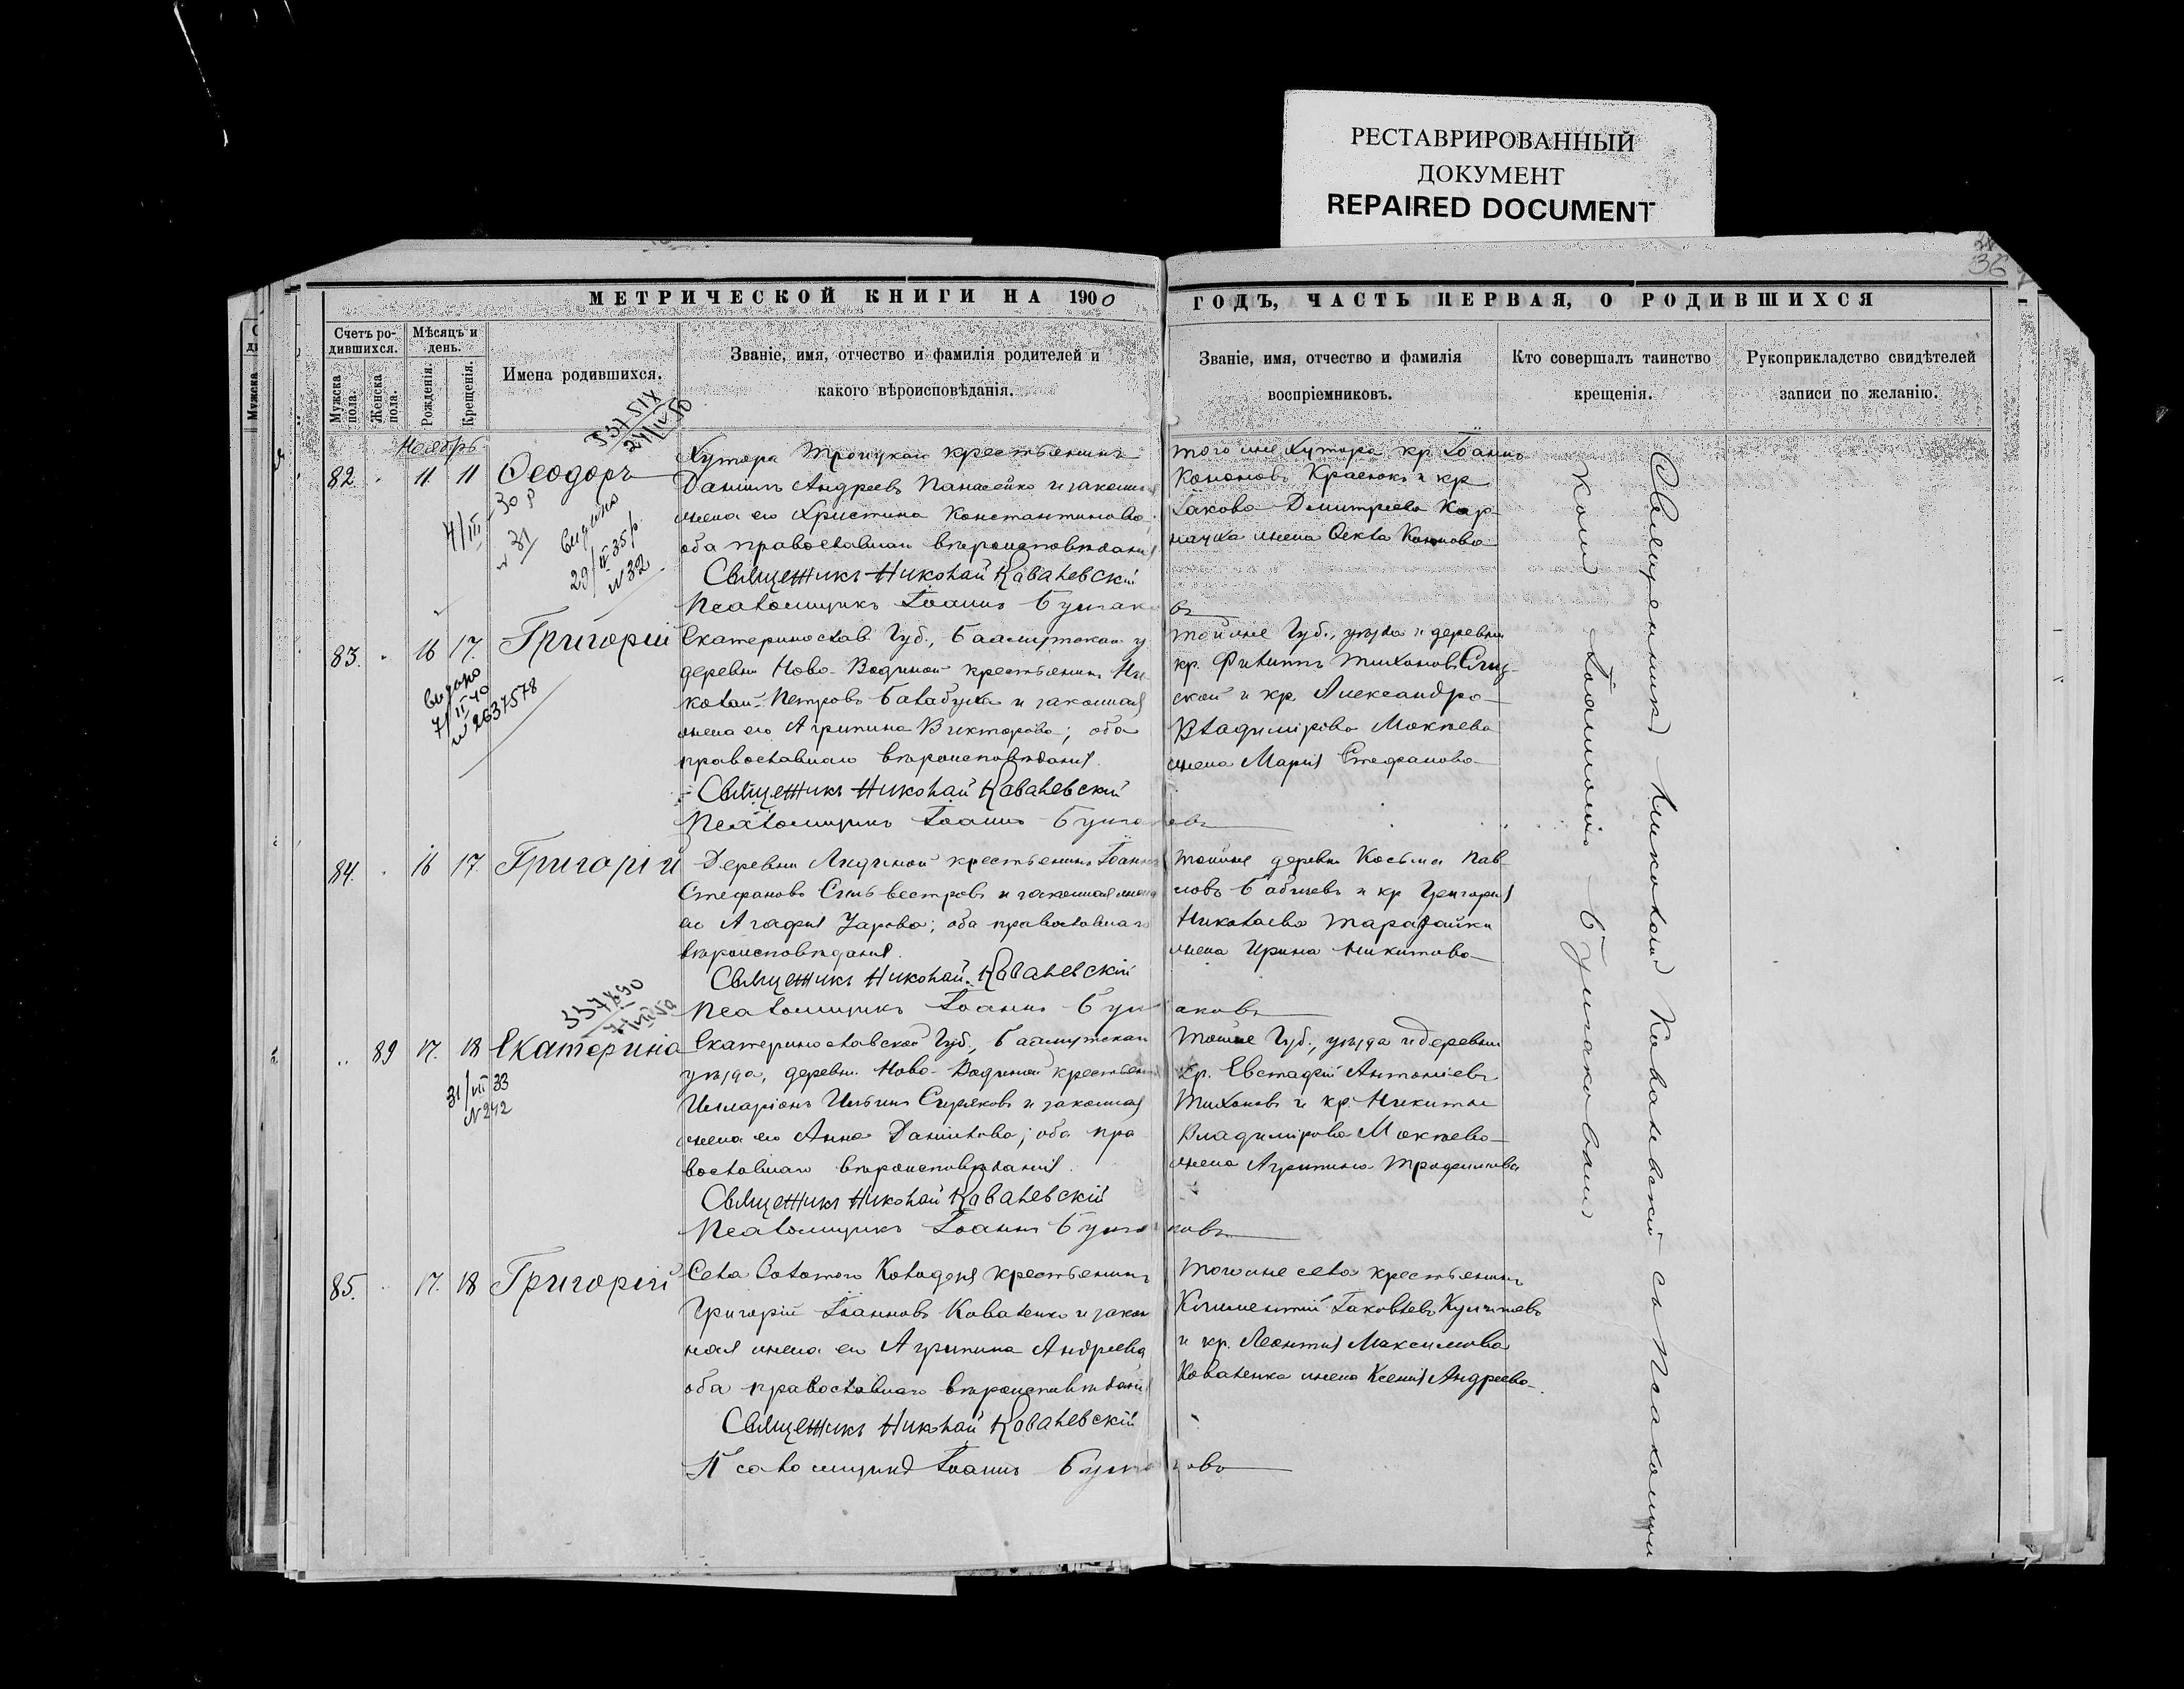 РЕСТАВРИРОВАННЫЙ
ДОКУМЕНТ
REPAIRED DOCUMENT
36
МЕТРИЧЕСКОЙ КНИГИ НА 1900
ГОДЪ, ЧАСТЬ ПЕРВАЯ, О РОДИВШИХСЯ
Счетъ ро-
дившихся.
Мужска
пола.
Женска
пола.
Мѣсяцъ и
день.
Рожденія.
Крещенія.
Имена родившихся.
Званіе, имя, отчество и фамилія родителей и
какого вѣроисповѣданія.
Званіе, имя, отчество и фамилія
воспріемниковъ.
Кто совершалъ таинство
крещенія.
Рукоприкладство свидѣтелей
записи по желанію.
Ноябрь
82. 11 11 Ѳеодоръ
Хутора Троицкаго крестьянинъ
Даніилъ Андреевъ Панасейко и законная
жена его Христина Константинова,
оба православнаго вѣроисповѣданія
Священникъ Николай Ковалевскій
Псаломщикъ Іоаннъ Бушаковъ
того же хутора кр. Іоаннъ
Кононовъ Краснокъ и кр
Іакова Димитріева Кар-
жена Ѳекла
выдано
29/IV 35 р
№ 32
83. 16 17. Григорій
выдано
7/II 40
№ 2637578
Екатеринослав. Губ., Бахмутскаго у.
деревни Ново-Водяной крестьянинъ Ни-
колай Петровъ Балабуха и законная
жена его Агрипина Викторова; оба
православнаго вѣроисповѣданія.
Священникъ Николай Ковалевскій
Псаломщикъ Іоаннъ Бушаковъ
той же Губ., уѣзда и деревни
кр. Филиппъ Тихоновъ
ской и кр. Александра
Владимірова Моктева
жена Марія Стефанова
84. 16 17. Григорій
Деревни Лидиной крестьянинъ Іоаннъ
Стефановъ Сильвестровъ и законная жена
его Агафія Уарова; оба православнаго
вѣроисповѣданія.
Священникъ Николай Ковалевскій
Псаломщикъ Іоаннъ Бушаковъ
той же деревни Косьма Пав-
ловъ Бабичевъ и кр Григорія
Николаева Тарадайки
жена Ирина Никитова
89 17. 18 Екатерина
31/VII 33
№ 242
Екатеринославской Губ., Бахмутскаго
уѣзда, деревни Ново-Водяной крестьянинъ
Илларіонъ Ильинъ Сиряковъ и законная
жена его Анна Даніилова; оба пра-
вославнаго вѣроисповѣданія.
Священникъ Николай Ковалевскій
Псаломщикъ Іоаннъ Бушаковъ
той же Губ., уѣзда и деревни
Кр. Евстафій Антоніевъ
Тихоновъ и кр. Никиты
Владимірова Моктева
жена Агрипина Трофимова
85. 17. 18 Григорій
Села Золотого Колодезя крестьянинъ
Григорій Іоанновъ Коваленко и закон
ная жена его Агрипина Андреева
оба православнаго вѣроисповѣданія
Священникъ Николай Ковалевскій
Псаломщикъ Іоаннъ Бушаковъ
того же села крестьянинъ
Климентій Іаковлевъ
и кр. Леонтія Максимова
Коваленка жена Ксенія Андреева
Священникъ Николай Ковалевскій съ Псаломщи
комъ Іоанномъ Бушаковымъ